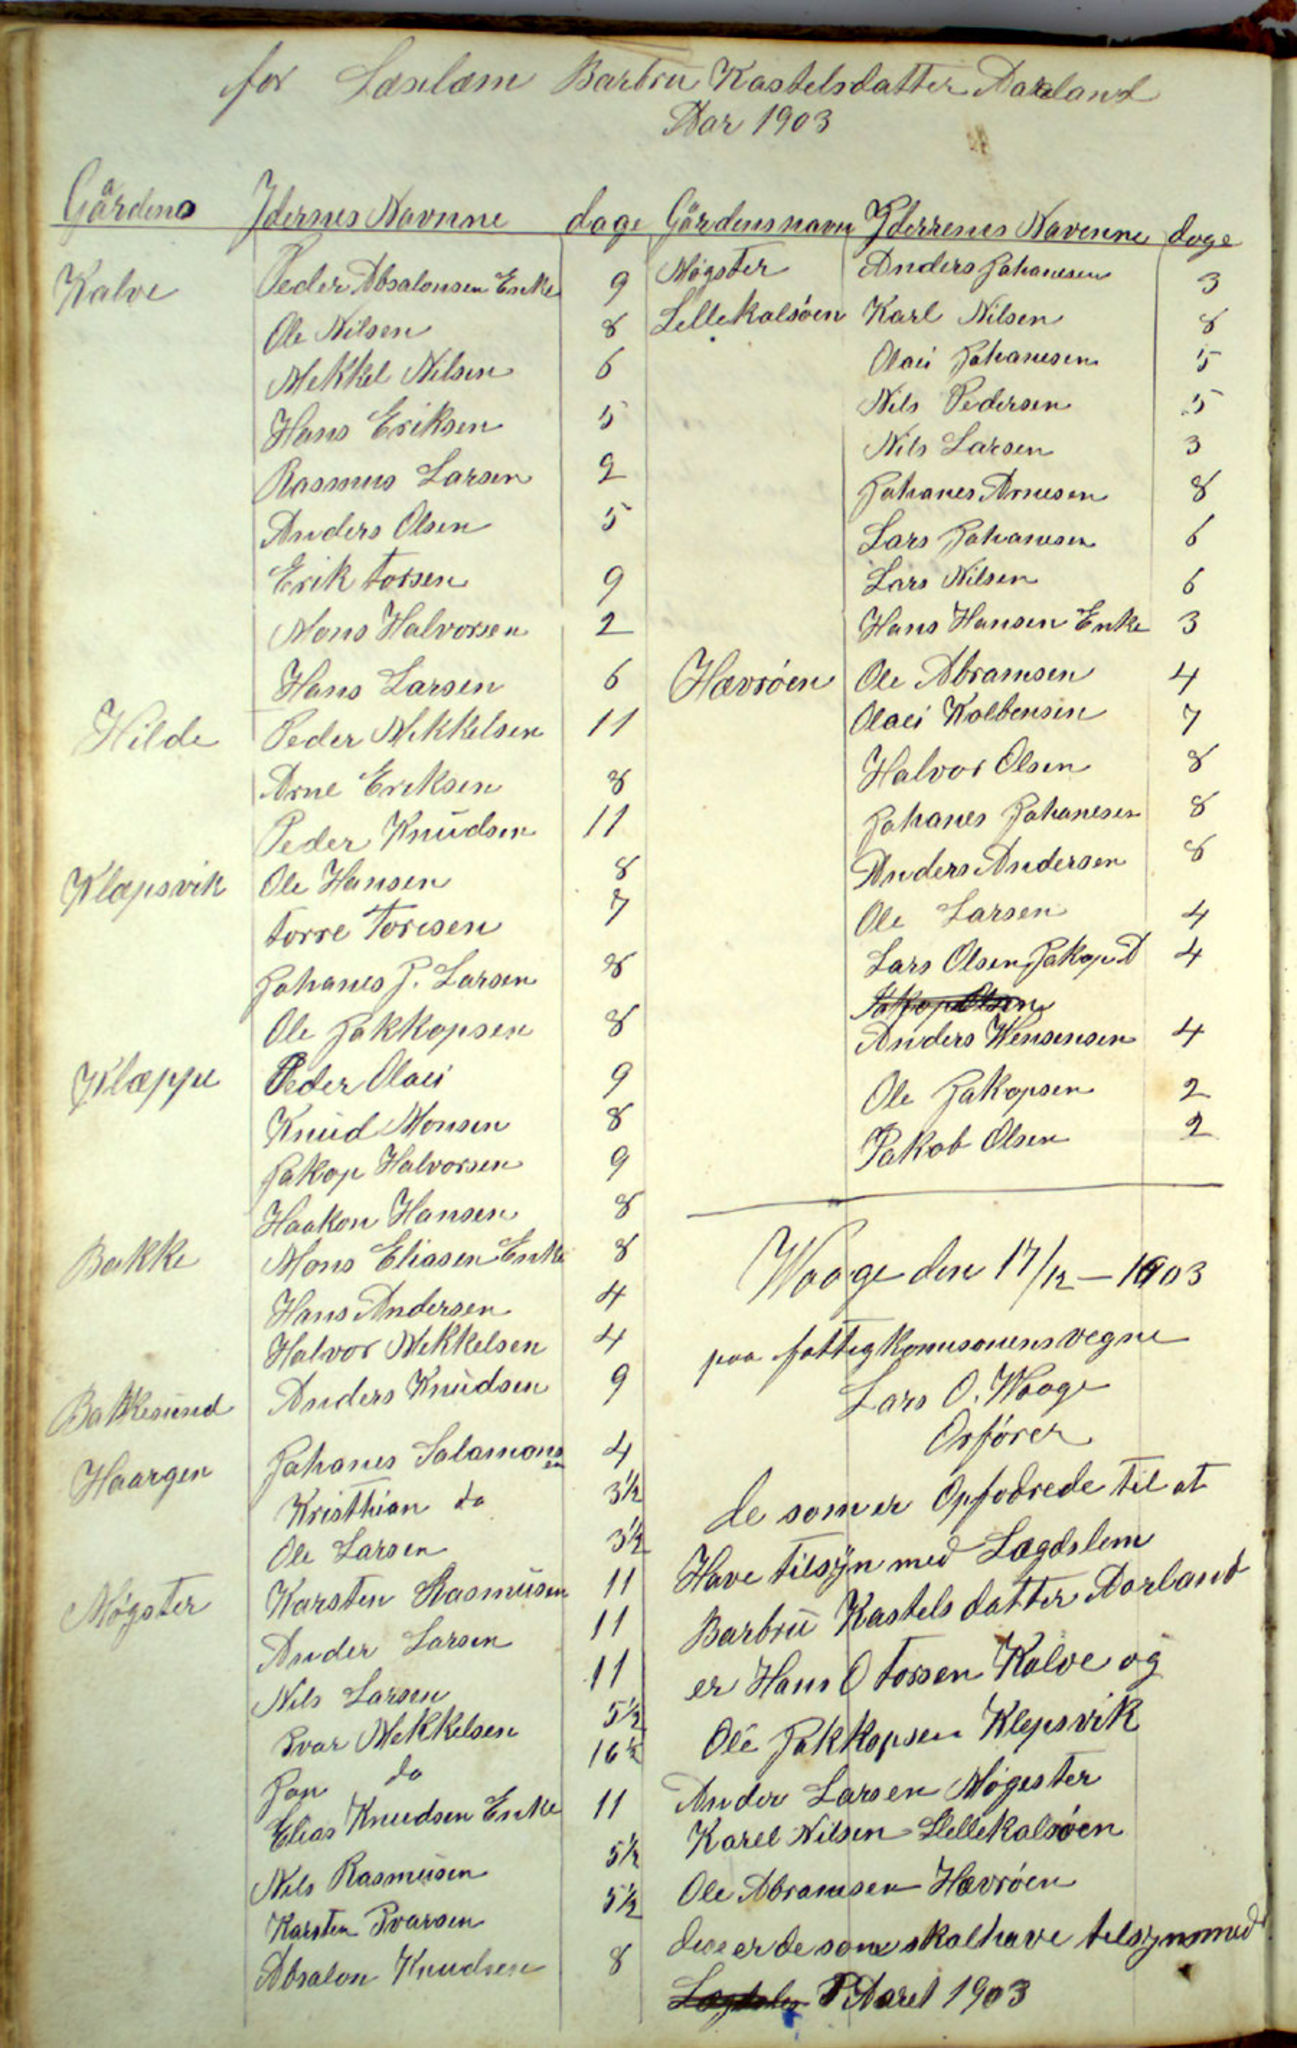 for Læselæm Barbru Kastelsdatter Aarland
Aar 1903
Gårdens Ydernes Navnne dage
Kalve Peder Absalonsen Enke 9
Ole Nilsen 8
Mekkel Nelsen 6
Hans Eriksen 5
Rasmus Larsen 9
Anders Olsen 5
Erik Torsen 9
Mons Halvorsen 2
Hans Larsen 6
Hilde Peder Mekkelsen 11
Arne Eriksen 8
Peder Knudsen 11
Klæpsvik Ole Hansen 8
Torre Toresen 7
Johanes J. Larsen 8
Ole Jakkopsen 8
Klæppe Peder Olaei 9
Knud Monsen 8
Jakop Halvorsen 9
Haakon Hansen 8
Bakke Mons Eliasen Enke 8
Hans Andersen 4
Halvor Mekkelsen 4
Bakkesund Anders Knudsen 9
Haargen Johanes Salamonsen 4
Kristhian do 3½
Ole Larsen 3½
Møgster Karsten Rasmusen 11
Ander Larsen 11
Nils Larsen 11
Ivar Mekkelsen 5½
Jon do 16½
Elias Knudsen Enke 11
Nils Rasmusen 5½
Karsten Ivarsen 5½
Absalon Knudsen 8
Gårdens navn Yderrenes Navenne dage
Møgster Anders Johanesen 3
Lellekalsøen Karl Nilsen 8
Olaei Johanesen 5
Nils Pedersen 5
Nils Larsen 3
Johanes Arnesen 8
Lars Johanesen 6
Lars Nilsen 6
Hans Hansen Enke 3
Hævrøen Ole Abramsen 4
Olaei Kolbensen 7
Halvor Olsen 8
Johanes Johanesen 8
Anders Andersen 8
Ole Larsen 4
Lars Olsen Jakop A 4
Jakop Olsen
Anders Wensensen 4
Ole Jakopsen 2
Jakob Olsen 2
Waage den 17/12 – 1903
paa fattigkomisonens vegne
Lars O. Waage
Orfører
de som er Opfodrede til at
Have tilsyn med Lægdslem
Barbru Kastels datter Aarland
er Hans O Torsen Kalve og
Ole Jakkopsen Klepsvik
Ander Larsen Møgester
Karel Nilsen Lellekalsøen
Ole Abramsen Hævrøen
dese er de som skal have telsyn med
I Aaret 1903